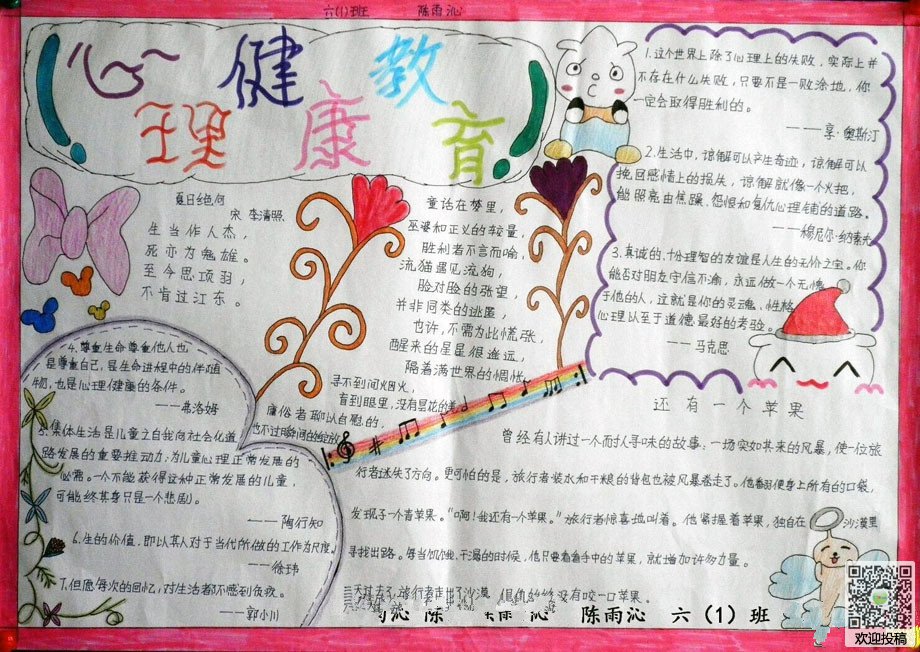 六(1)班 陈雨沁
心理健康教育
1.这个世界上除了心理上的失败，实际上并
不存在什么失败，只要不是一败涂地，你
一定会取得胜利的。
——享·奥斯汀
2.生活中，谅解可以产生奇迹，谅解可以
挽回感情上的损失，谅解就像一个火把，
能照亮由焦躁、怨恨和复仇心理铺的道路。
——穆尼尔·纳素夫
3.真诚的、十分理智的友谊是人生的无价之宝。你
能否对朋友守信不渝，永远做一个无愧
于他的人，这就是你的灵魂、性格、
心理以至于道德最好的考验。
——马克思
夏日绝句
宋 李清照
生当作人杰，
死亦为鬼雄。
至今思项羽，
不肯过江东。
童话在梦里，
巫婆和正义的较量，
胜利者不言而喻，
流猫遇见流狗，
脸对脸的张望，
并非同类的逃匿，
也许，不需为此慌张，
醒来的星星很遥远，
隔着满世界的惆怅
寻不到间烟火，
盲到眼里，没有昙花的美
庸俗者聊以自慰的，
也不过瞬间的绽放
4.尊重生命尊重他人也
是尊重自己，是生命进程中的伴随
物，也是心理健康的条件。
——弗洛姆
5.集体生活是儿童之自我向社会化道
路发展的重要推动力；为儿童心理正常发展的
必需。一个不能获得这种正常发展的儿童，
可能终其身只是一个悲剧。
——陶行知
6.生的价值，即以其人对于当代所做的工作为尺度。
——徐玮
7.但愿每次的回忆，对生活都不感到负疚。
——郭小川
还有一个苹果
曾经有人讲过一个而人寻味的故事：一场突如其来的风暴，使一位旅
行者迷失了方向。更可怕的是，旅行者装水和干粮的背包也被风暴卷走了。他翻便身上所有的口袋，
发现了一个青苹果。“啊！我还有一个苹果。”旅行者惊喜地叫着。他紧握着苹果，独自在沙漠里
寻找出路。每当饥饿、干渴的时候，他只要看看手中的苹果，就增加许多力量。
三天过去了，旅行者走出了沙漠，但他始终没有咬一口苹果。
沁 陈 雨 沁 陈雨沁 六（1）班
欢迎投稿